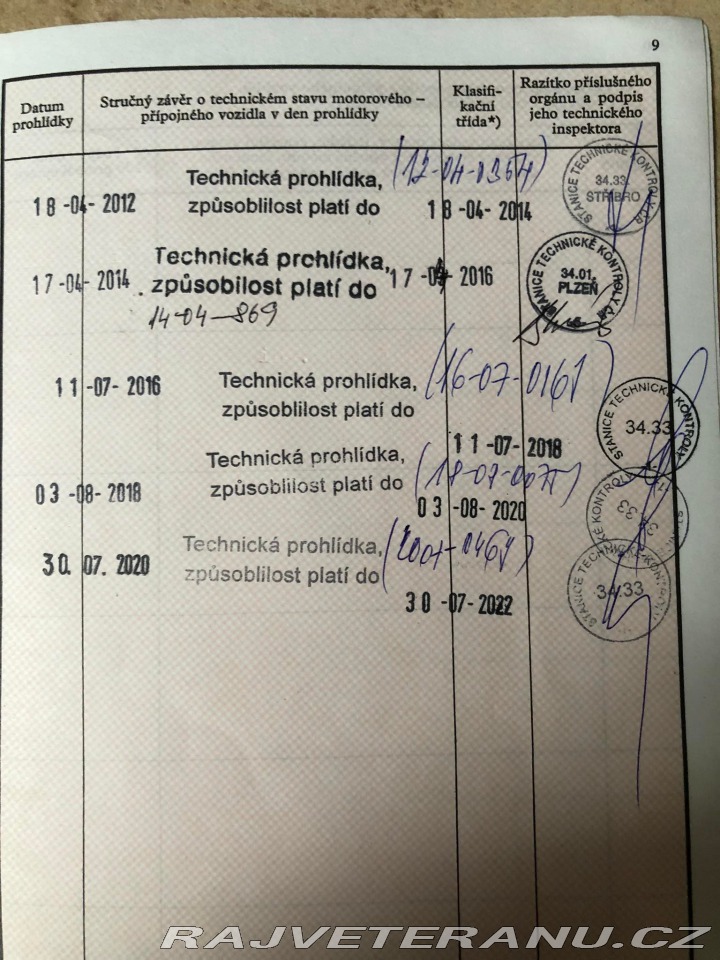 9
Datum prohlídky
Stručný závěr o technickém stavu motorového – přípojného vozidla v den prohlídky
Klasifi-
kační
třída*)
Razítko příslušného
orgánu a podpis
jeho technického
inspektora
Technická prohlídka, (12-04-0354)
18 -04- 2012 způsoblilost platí do 18 -04- 2014
STANICE TECHNICKÉ KONTROLY
34.33.
STŘÍBRO
Technická prchlídka,
17 -04- 2014 způsobilost platí do 17 -04- 2016
14-04-869
STANICE TECHNICKÉ KONTROLY
34.01.
PLZEŇ
Technická prohlídka, (16-07-0161)
11 -07- 2016 způsoblilost platí do
11 -07- 2018
STANICE TECHNICKÉ KONTROLY
34.33
Technická prohlídka,
03 -08- 2018 způsoblilost platí do
03 -08- 2020
KONTROLY
33
Technická prohlídka,
30. 07. 2020 způsoblilost platí do
30 -07- 2022
STANICE TECHNICKÉ KONTROLY
34.33
RAJVETERANU.CZ